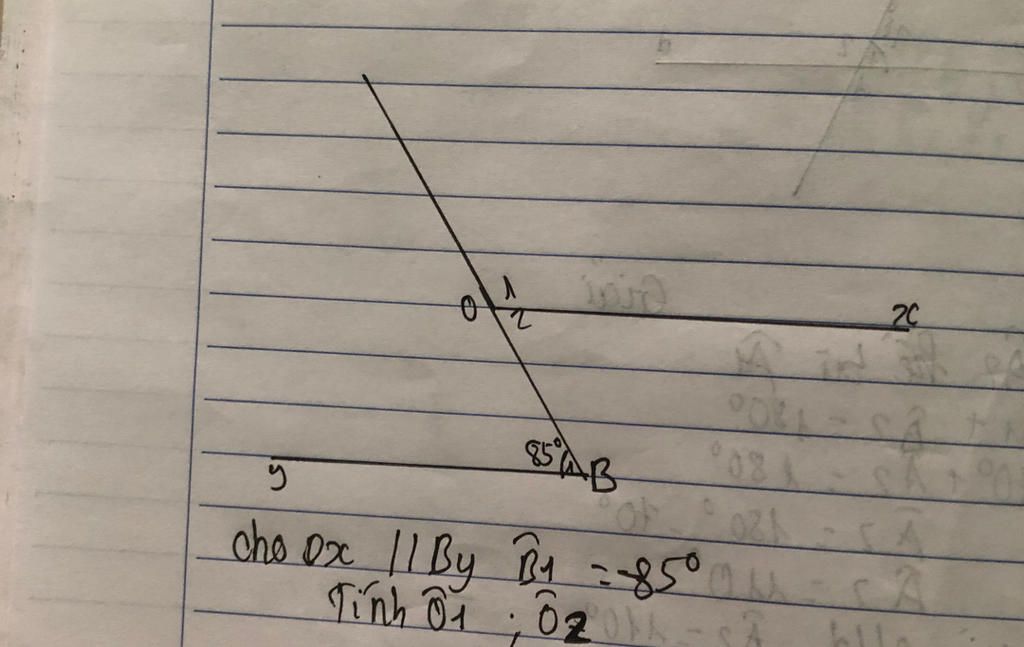 O 1
2 x
85° 1 B
y
Cho Ox // By B̂1 = 85°
Tính Ô1 ; Ô2